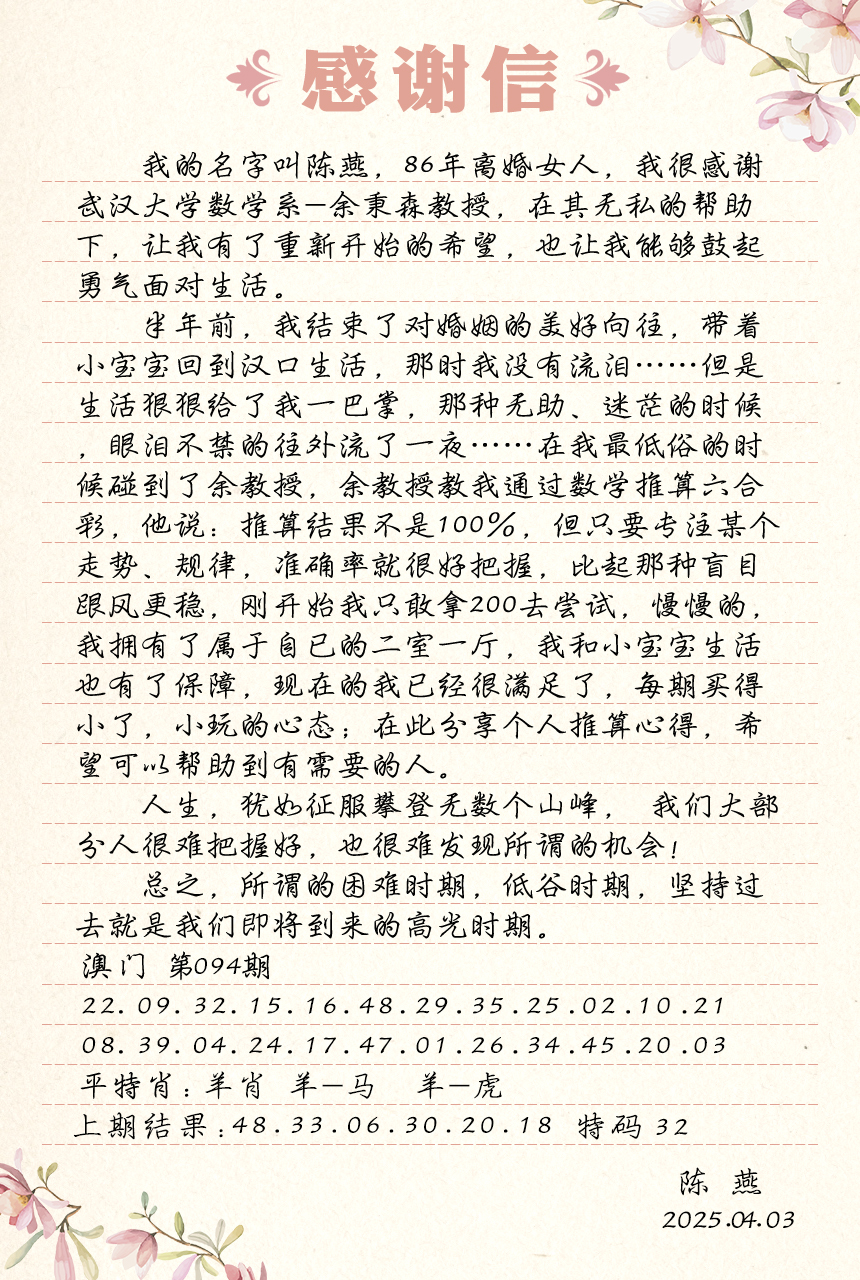 感谢信
我的名字叫陈燕，86年离婚女人，我很感谢
武汉大学数学系—余秉森教授，在其无私的帮助
下，让我有了重新开始的希望，也让我能够鼓起
勇气面对生活。
半年前，我结束了对婚姻的美好向往，带着
小宝宝回到汉口生活，那时我没有流泪……但是
生活狠狠给了我一巴掌，那种无助、迷茫的时候
，眼泪不禁的往外流了一夜……在我最低俗的时
候碰到了余教授，余教授教我通过数学推算六合
彩，他说：推算结果不是100%，但只要专注某个
走势、规律，准确率就很好把握，比起那种盲目
跟风更稳，刚开始我只敢拿200去尝试，慢慢的，
我拥有了属于自已的二室一厅，我和小宝宝生活
也有了保障，现在的我已经很满足了，每期买得
小了，小玩的心态；在此分享个人推算心得，希
望可以帮助到有需要的人。
人生，犹如征服攀登无数个山峰， 我们大部
分人很难把握好，也很难发现所谓的机会！
总之，所谓的困难时期，低谷时期，坚持过
去就是我们即将到来的高光时期。
澳门 第094期
22.09.32.15.16.48.29.35.25.02.10.21
08.39.04.24.17.47.01.26.34.45.20.03
平特肖：羊肖 羊—马 羊—虎
上期结果：48.33.06.30.20.18 特码 32
陈 燕
2025.04.03